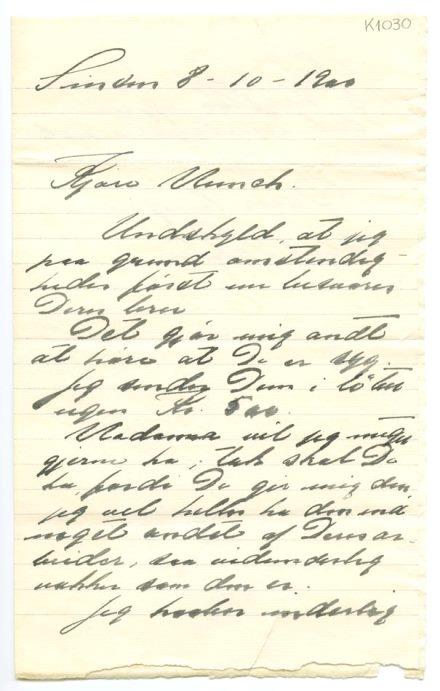 K1030
8-10-1900
Kjære Munch.
Undskyld, at jeg
paa grund omstendig-
heder først nu besvarer
Deres brev
Det gjør mig ondt
at høre at De er syg.
Jeg sender Dem i løbet
ugen Kr. 500.
Madonna vil jeg meget
gjerne ha, tak skal De
ha, fordi De gir mig den,
jeg vil heller ha den end
noget andet af Deres ar-
beider, saa vidunderlig
vakker som den er.
Jeg haaber inderlig